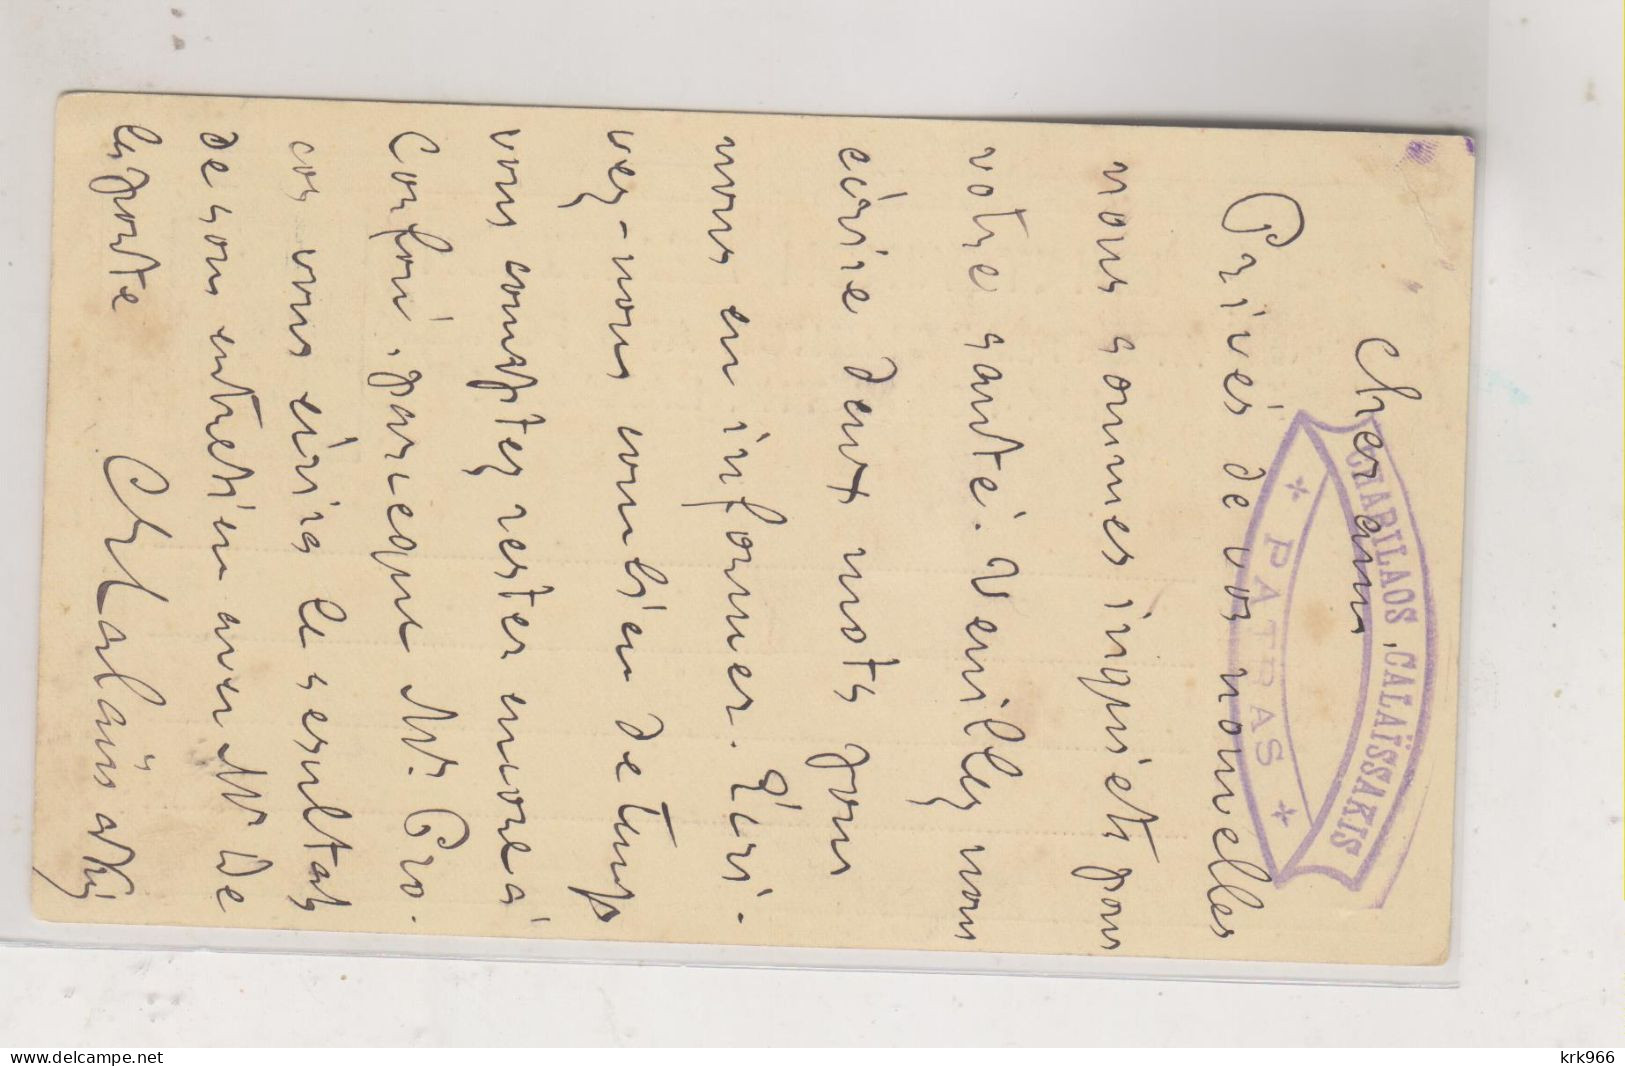 CHARILAOS CALAÏSSAKIS
PATRAS
Cher ami,
Privés de vos nouvelles
nous sommes inquiets pour
votre santé. Veuillez nous
écrire deux mots pour
nous en informer. Écri-
vez-nous combien de temps
vous comptez rester encore à
Corfou, parceque Mr. Pro-
cos vous écrira le resultat
de son entretien avec Mr De
les poste